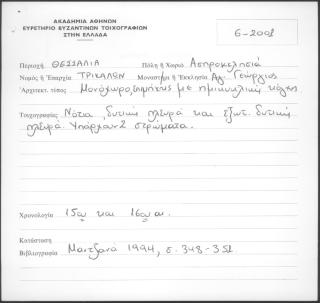 ΑΚΑΔΗΜΙΑ ΑΘΗΝΩΝ
ΕΥΡΕΤΗΡΙΟ ΒΥΖΑΝΤΙΝΩΝ ΤΟΙΧΟΓΡΑΦΙΩΝ
ΣΤΗΝ ΕΛΛΑΔΑ
6-2001
Περιοχή ΘΕΣΣΑΛΙΑ Πόλη ή Χωριό Ασπροκκλησιά
Νομός ή Επαρχία ΤΡΙΚΑΛΩΝ Μοναστήρι ή Εκκλησία Αγ. Γεώργιος
Αρχιτεκτ. τύπος Μονόχωρος, με ημικυκλική κόγχη
Τοιχογραφίες Νότια, δυτική πλευρά και εξωτ. δυτική
πλευρά. Υπάρχουν 2 στρώματα.
Χρονολογία 15ου και 16ου αι.
Κατάσταση
Βιβλιογραφία Μαντζανά 1994, σ. 348-351